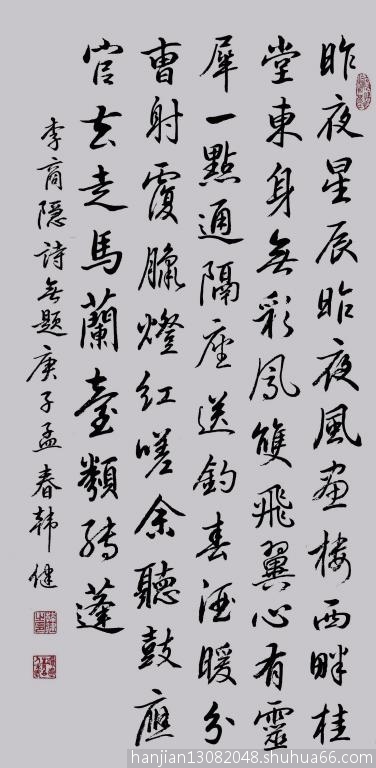 昨夜星辰昨夜風畫樓西畔桂
堂東身無彩鳳雙飛翼心有靈
犀一點通隔座送鈎春酒暖分
曹射覆臘燈紅嗟余聽鼓應
官去走馬蘭臺類轉蓬
李商隱詩無題庚子孟春韓健
hanjian13082048.shuhua66.com